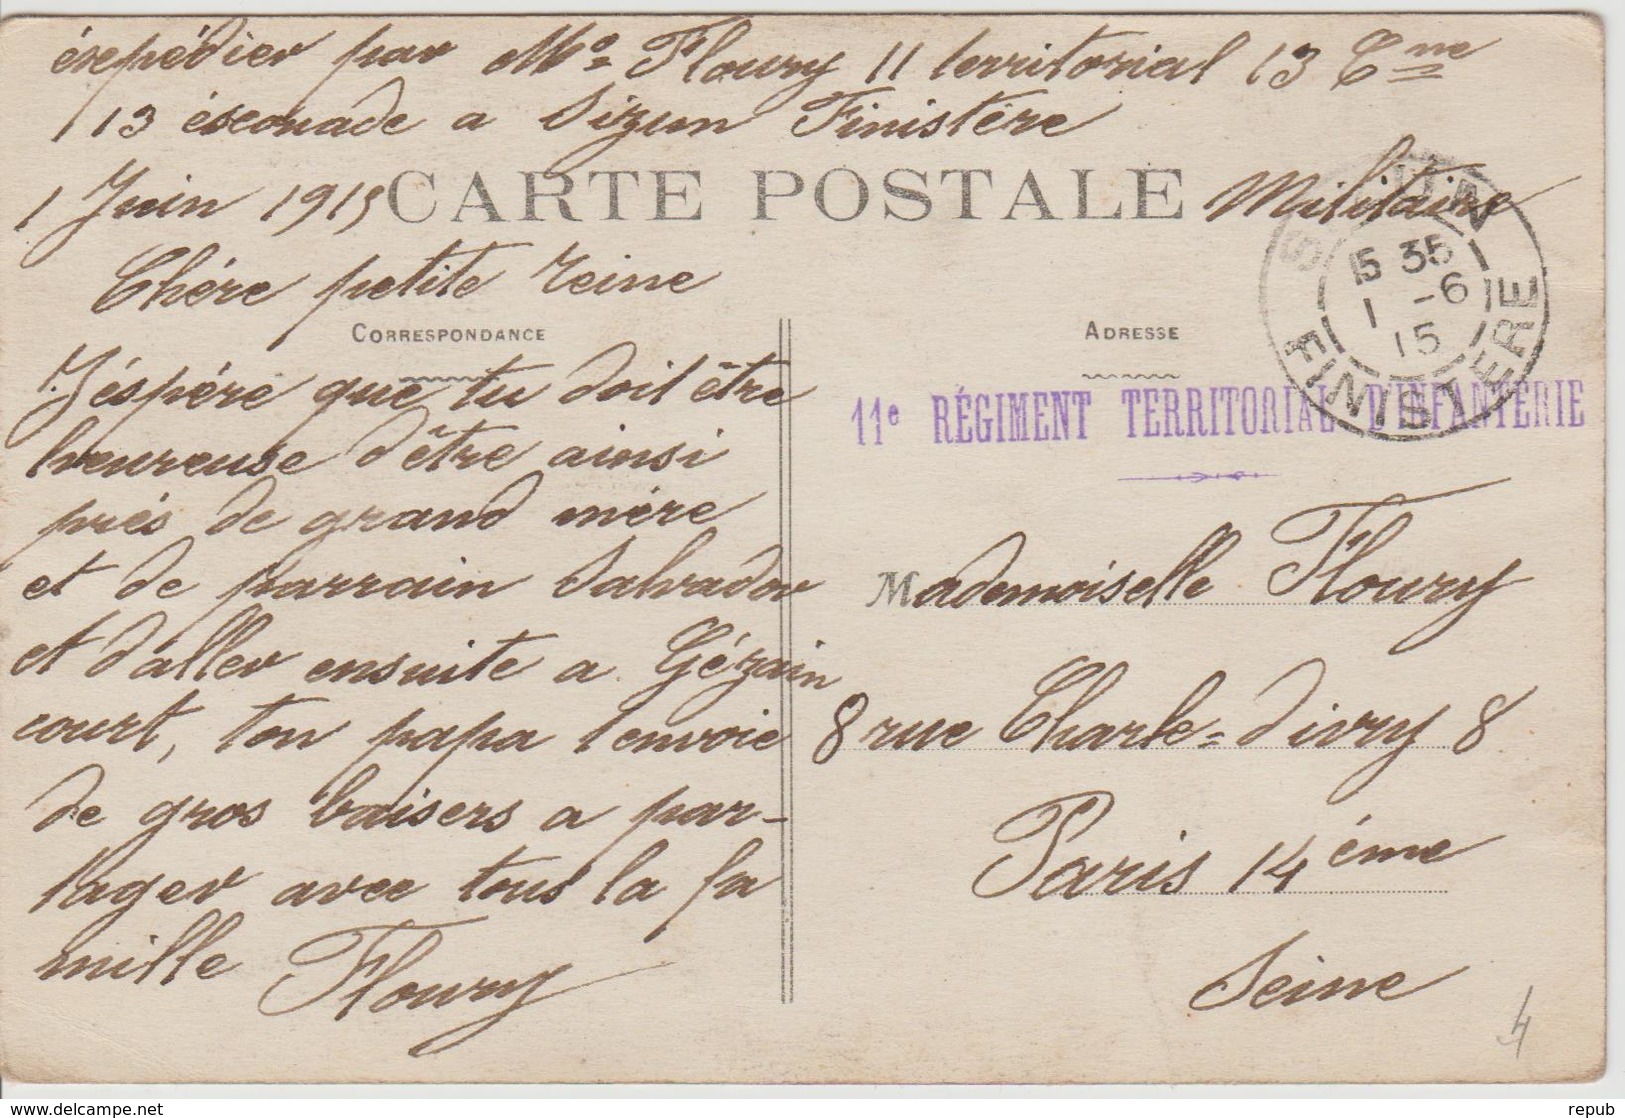 éxepédier par Mo= Floury 11 territorial 13 Cne
13 éscouade a Sizun Finistére
1 Juin 1915 CARTE POSTALE Militaire
Chére petite reine
CORRESPONDANCE
J'éspére que tu doit être
heureuse d'être ainsi
prés de grand mére
et de parrain Salvador
et d'aller ensuite a Gézain
court, ton papa t'envoie
de gros baisers a par-
tager avec tous la fa
mille Floury
ADRESSE
SIZUN
15 35
1 -6
15
FINISTERE
11e RÉGIMENT TERRITORIAL D'INFANTERIE
Mademoiselle Floury
8 rue Charle=divry 8
Paris 14éme
Seine
4
repub
delcampe.net